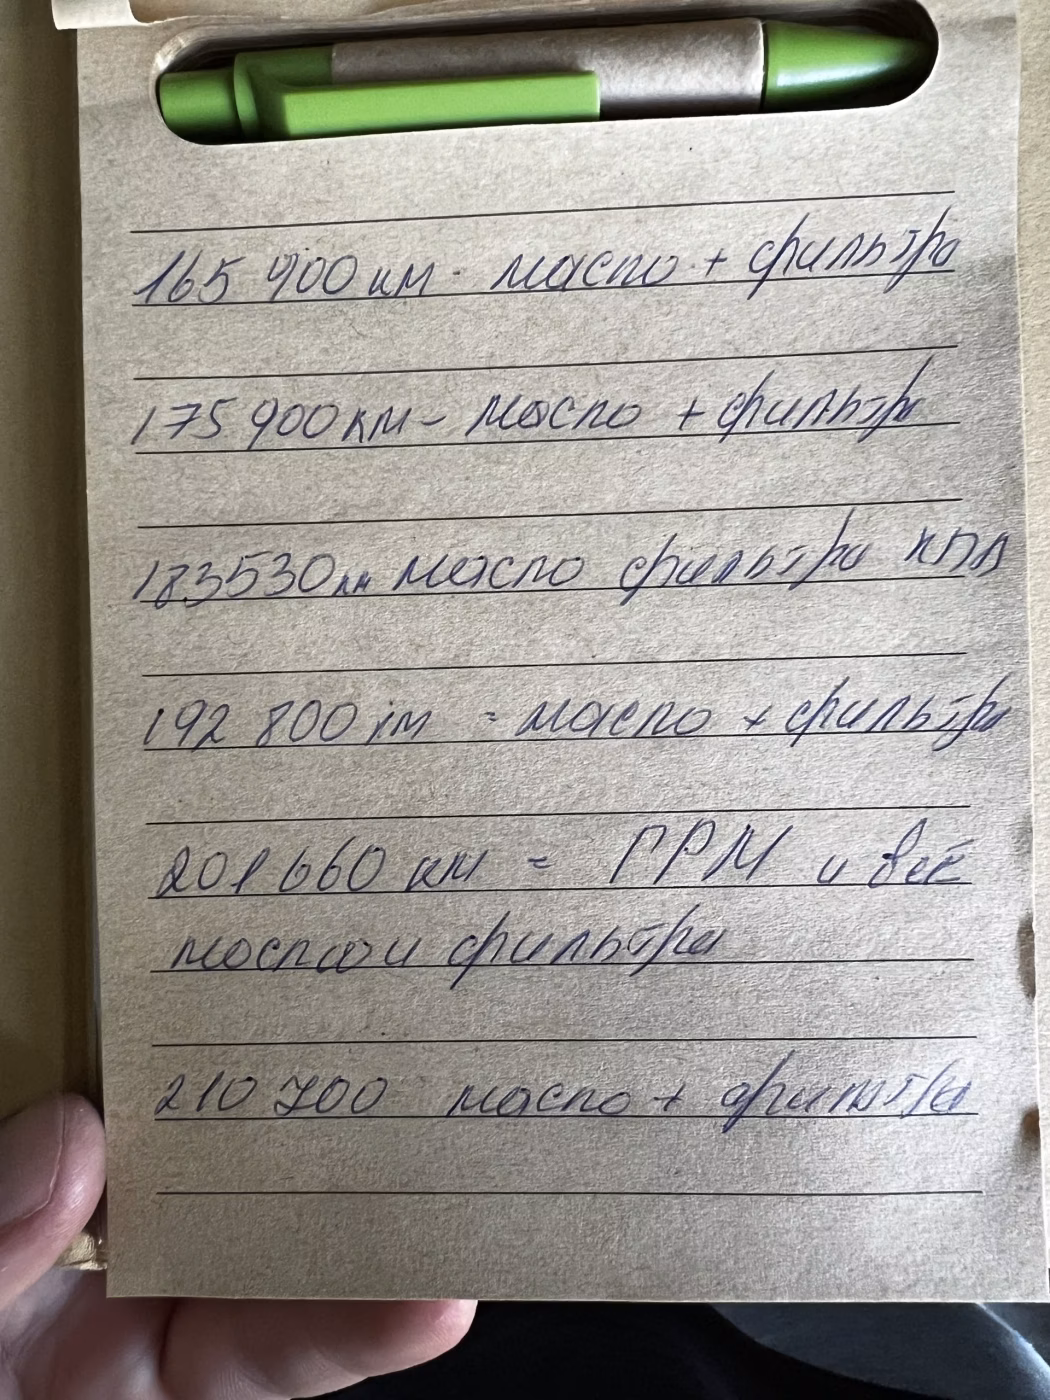 165 900 км - масло + фильтра
175 900 км - масло + фильтра
183530 км масло фильтра КПП
192 800 км - масло + фильтра
201660 км = ГРМ и всё
масла и фильтра
210 700 масло + фильтра